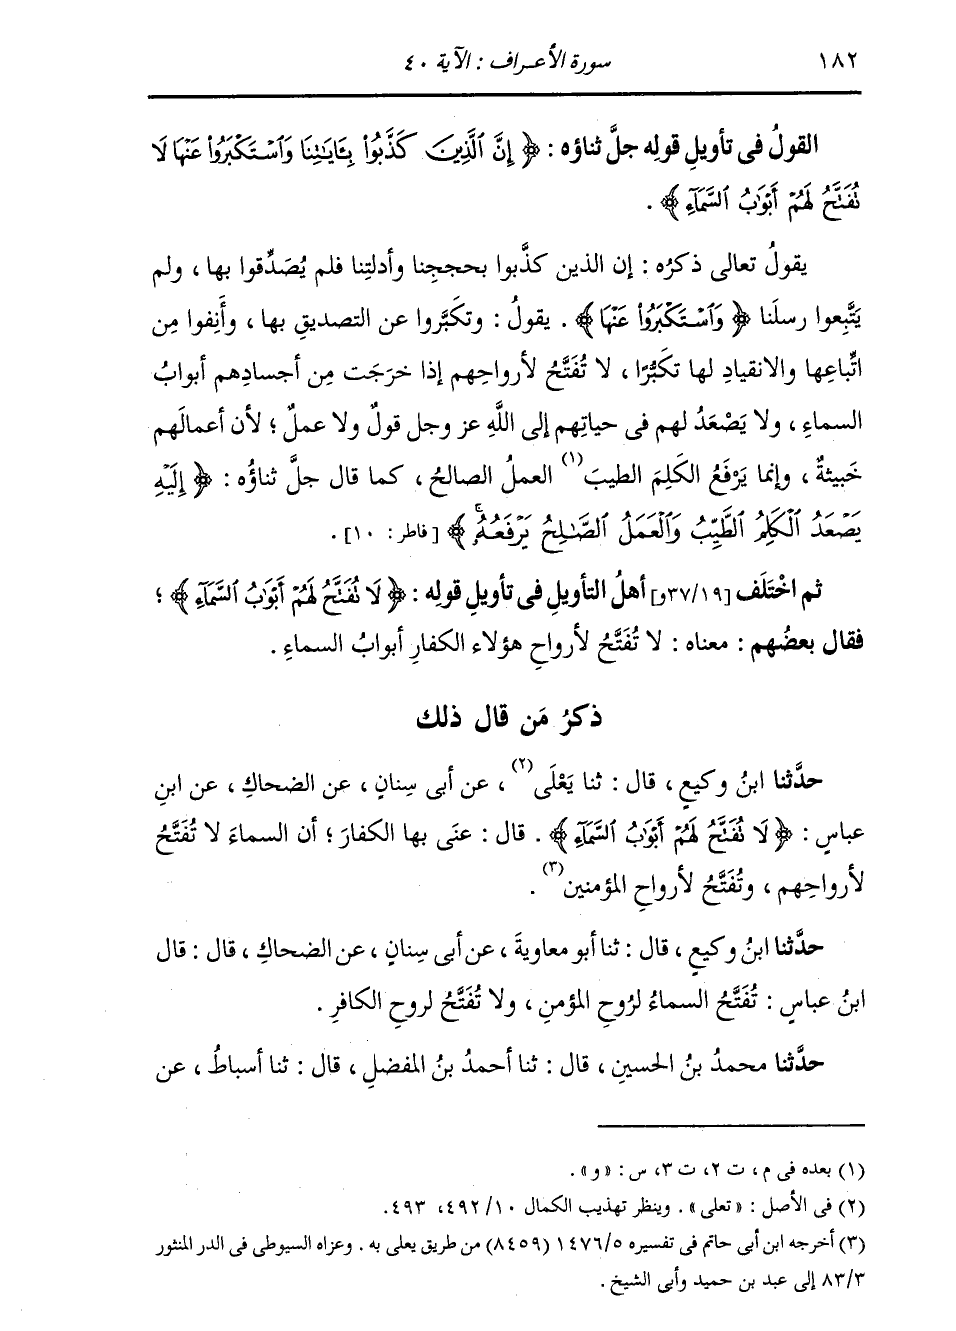 ١٨٢ سورة الأعراف : الآية ٤٠
القولُ فى تأويلِ قولِه جلَّ ثناؤه : ﴿ إِنَّ ٱلَّذِينَ كَذَّبُوا۟ بِـَٔايَٰتِنَا وَٱسْتَكْبَرُوا۟ عَنْهَا لَا
تُفَتَّحُ لَهُمْ أَبْوَٰبُ ٱلسَّمَآءِ ﴾ .
يقولُ تعالى ذكرُه : إن الذين كذَّبوا بحججِنا وأدلتِنا فلم يُصَدِّقوا بها ، ولم
يَتَّبِعوا رسلَنا ﴿ وَٱسْتَكْبَرُوا۟ عَنْهَا ﴾ . يقولُ : وتكَبَّروا عن التصديقِ بها ، وأَنِفوا مِن
اتِّباعِها والانقيادِ لها تكَبُّرًا ، لا تُفَتَّحُ لأرواحِهم إذا خرَجَت مِن أجسادِهم أبوابُ
السماءِ ، ولا يَصْعَدُ لهم فى حياتِهم إلى اللَّهِ عز وجل قولٌ ولا عملٌ ؛ لأن أعمالَهم
خَبيثةٌ ، وإنما يَرْفَعُ الكَلِمَ الطيبَ(١) العملُ الصالحُ ، كما قال جلَّ ثناؤُه : ﴿ إِلَيْهِ
يَصْعَدُ ٱلْكَلِمُ ٱلطَّيِّبُ وَٱلْعَمَلُ ٱلصَّٰلِحُ يَرْفَعُهُۥ ۚ ﴾ [ فاطر : ١٠] .
ثم اخْتَلَف [٣٧/١٩و] أهلُ التأويلِ فى تأويلِ قولِه : ﴿ لَا تُفَتَّحُ لَهُمْ أَبْوَٰبُ ٱلسَّمَآءِ ﴾ ؛
فقال بعضُهم : معناه : لا تُفَتَّحُ لأرواحِ هؤلاء الكفارِ أبوابُ السماءِ .
ذكرُ مَن قال ذلك
حدَّثنا ابنُ وكيعٍ ، قال : ثنا يَعْلَى(٢) ، عن أبى سِنانٍ ، عن الضحاكِ ، عن ابنِ
عباسٍ : ﴿ لَا تُفَتَّحُ لَهُمْ أَبْوَٰبُ ٱلسَّمَآءِ ﴾ . قال : عنَى بها الكفارَ ؛ أن السماءَ لا تُفَتَّحُ
لأرواحِهم ، وتُفَتَّحُ لأرواحِ المؤمنين(٣) .
حدَّثنا ابنُ وكيعٍ ، قال : ثنا أبو معاويةَ ، عن أبى سِنانٍ ، عن الضحاكِ ، قال : قال
ابنُ عباسٍ : تُفَتَّحُ السماءُ لرُوحِ المؤمنِ ، ولا تُفَتَّحُ لروحِ الكافرِ .
حدَّثنا محمدُ بنُ الحسينِ ، قال : ثنا أحمدُ بنُ المفضلِ ، قال : ثنا أسباطُ ، عن
(١) بعده فى م ، ت ٢، ت ٣، س : « و » .
(٢) فى الأصل : « تعلى » . وينظر تهذيب الكمال ١٠/ ٤٩٢، ٤٩٣.
(٣) أخرجه ابن أبى حاتم فى تفسيره ١٤٧٦/٥ (٨٤٥٩) من طريق يعلى به . وعزاه السيوطى فى الدر المنثور
٨٣/٣ إلى عبد بن حميد وأبى الشيخ .